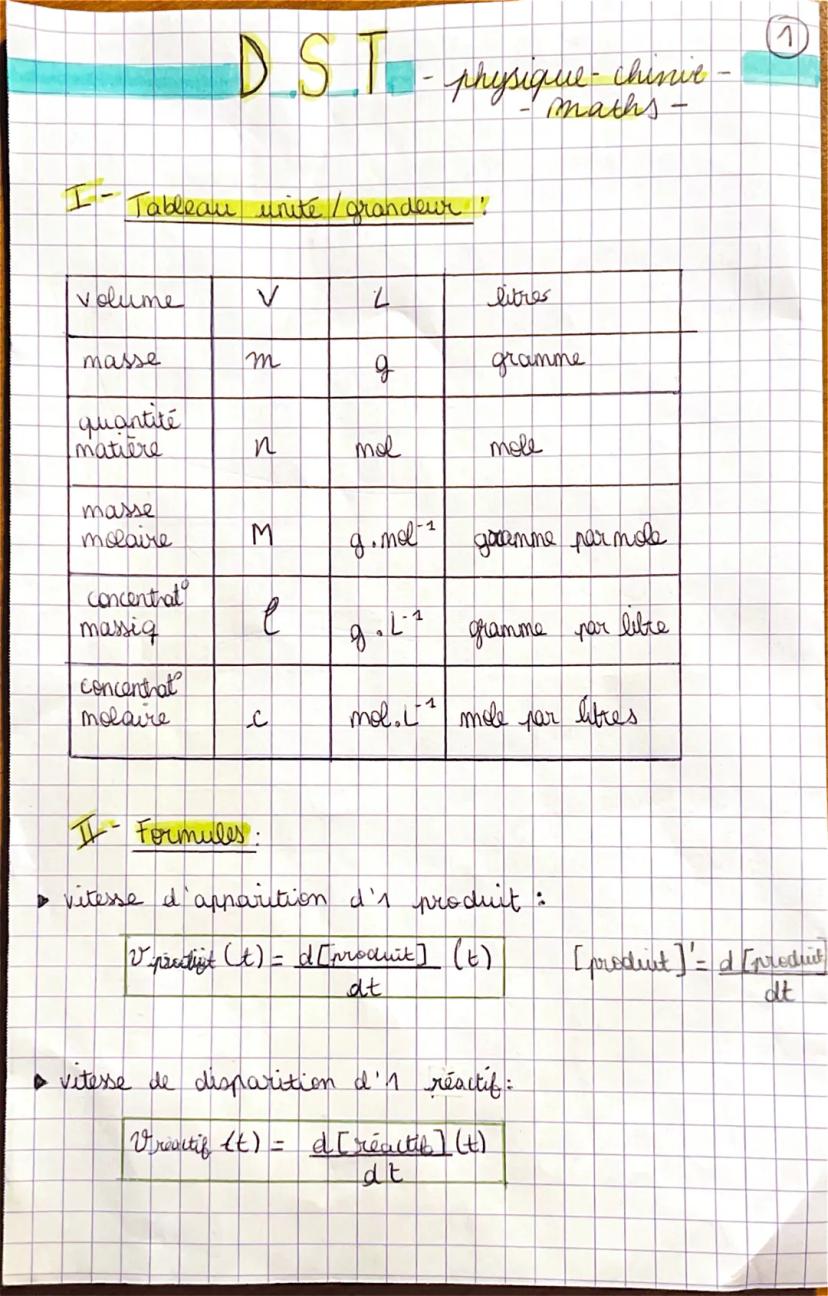 1
D.S.T. - physique - chimie -
- maths -
I - Tableau unité / grandeur :
volume V L litres
masse m g gramme
quantité
matière n mol mole
masse
molaire M g.mol⁻¹ gramme par mole
concentrat°
massiq ℓ g.L⁻¹ gramme par libre
concentrat°
molaire c mol.L⁻¹ mole par litres
II - Formules :
▶ vitesse d'apparition d'1 produit :
V (t) = d[produit] (t) [produit]' = d[produit]
dt dt
▶ vitesse de disparition d'1 réactif :
Vréactif (t) = d[réactif] (t)
dt